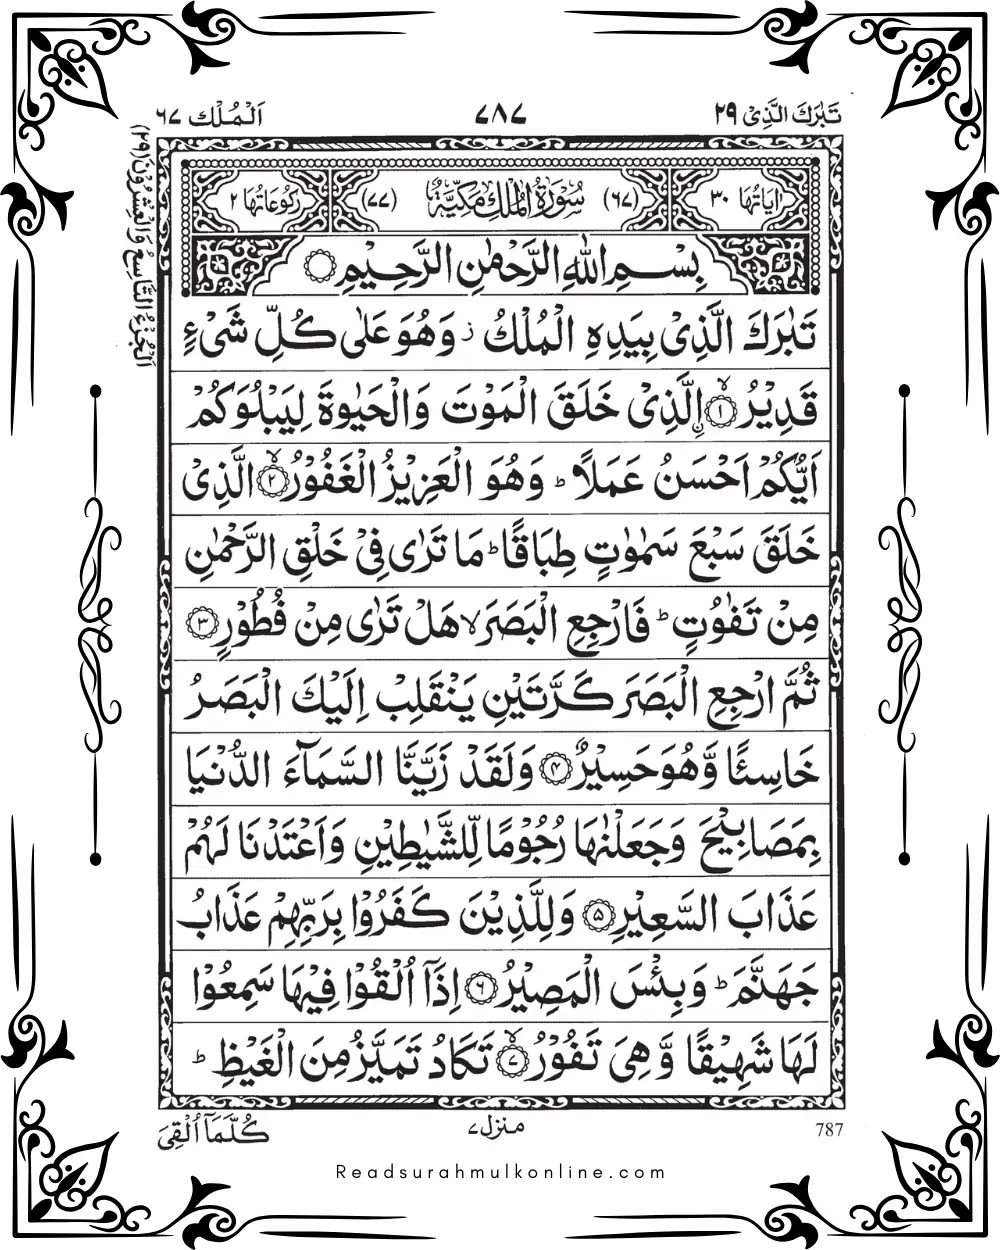 تَبٰرَكَ الَّذِیْ ٢٩
٧٨٧
اَلْمُلْك ٦٧
اَلْجُزْءُ التَّاسِعُ وَالْعِشْرُوْنَ (٢٩)
اٰيَاتُهَا ٣٠
(٦٧) سُوْرَةُ الْمُلْكِ مَكِّيَّةٌ (٧٧)
رُكُوْعَاتُهَا ٢
بِسْمِ اللّٰهِ الرَّحْمٰنِ الرَّحِيْمِ
تَبٰرَكَ الَّذِیْ بِيَدِهِ الْمُلْكُ ز وَهُوَ عَلٰى كُلِّ شَیْءٍ
قَدِيْرُ ۙ﴿١﴾ اۨلَّذِیْ خَلَقَ الْمَوْتَ وَالْحَيٰوةَ لِيَبْلُوَكُمْ
اَيُّكُمْ اَحْسَنُ عَمَلًا ؕ وَهُوَ الْعَزِيْزُ الْغَفُوْرُ ۙ﴿٢﴾ الَّذِیْ
خَلَقَ سَبْعَ سَمٰوٰتٍ طِبَاقًا ؕ مَا تَرٰى فِیْ خَلْقِ الرَّحْمٰنِ
مِنْ تَفٰوُتٍ ؕ فَارْجِعِ الْبَصَرَ ۙ هَلْ تَرٰى مِنْ فُطُوْرٍ ﴿٣﴾
ثُمَّ ارْجِعِ الْبَصَرَ كَرَّتَيْنِ يَنْقَلِبْ اِلَيْكَ الْبَصَرُ
خَاسِئًا وَّهُوَ حَسِيْرٌ ﴿٤﴾ وَلَقَدْ زَيَّنَّا السَّمَآءَ الدُّنْيَا
بِمَصَابِيْحَ وَجَعَلْنٰهَا رُجُوْمًا لِّلشَّيٰطِيْنِ وَاَعْتَدْنَا لَهُمْ
عَذَابَ السَّعِيْرِ ﴿٥﴾ وَلِلَّذِيْنَ كَفَرُوْا بِرَبِّهِمْ عَذَابُ
جَهَنَّمَ ؕ وَبِئْسَ الْمَصِيْرُ ﴿٦﴾ اِذَآ اُلْقُوْا فِيْهَا سَمِعُوْا
لَهَا شَهِيْقًا وَّهِیَ تَفُوْرُ ۙ﴿٧﴾ تَكَادُ تَمَيَّزُ مِنَ الْغَيْظِ ؕ
787
منزل ٧
كُلَّمَآ اُلْقِیَ
Readsurahmulkonline.com